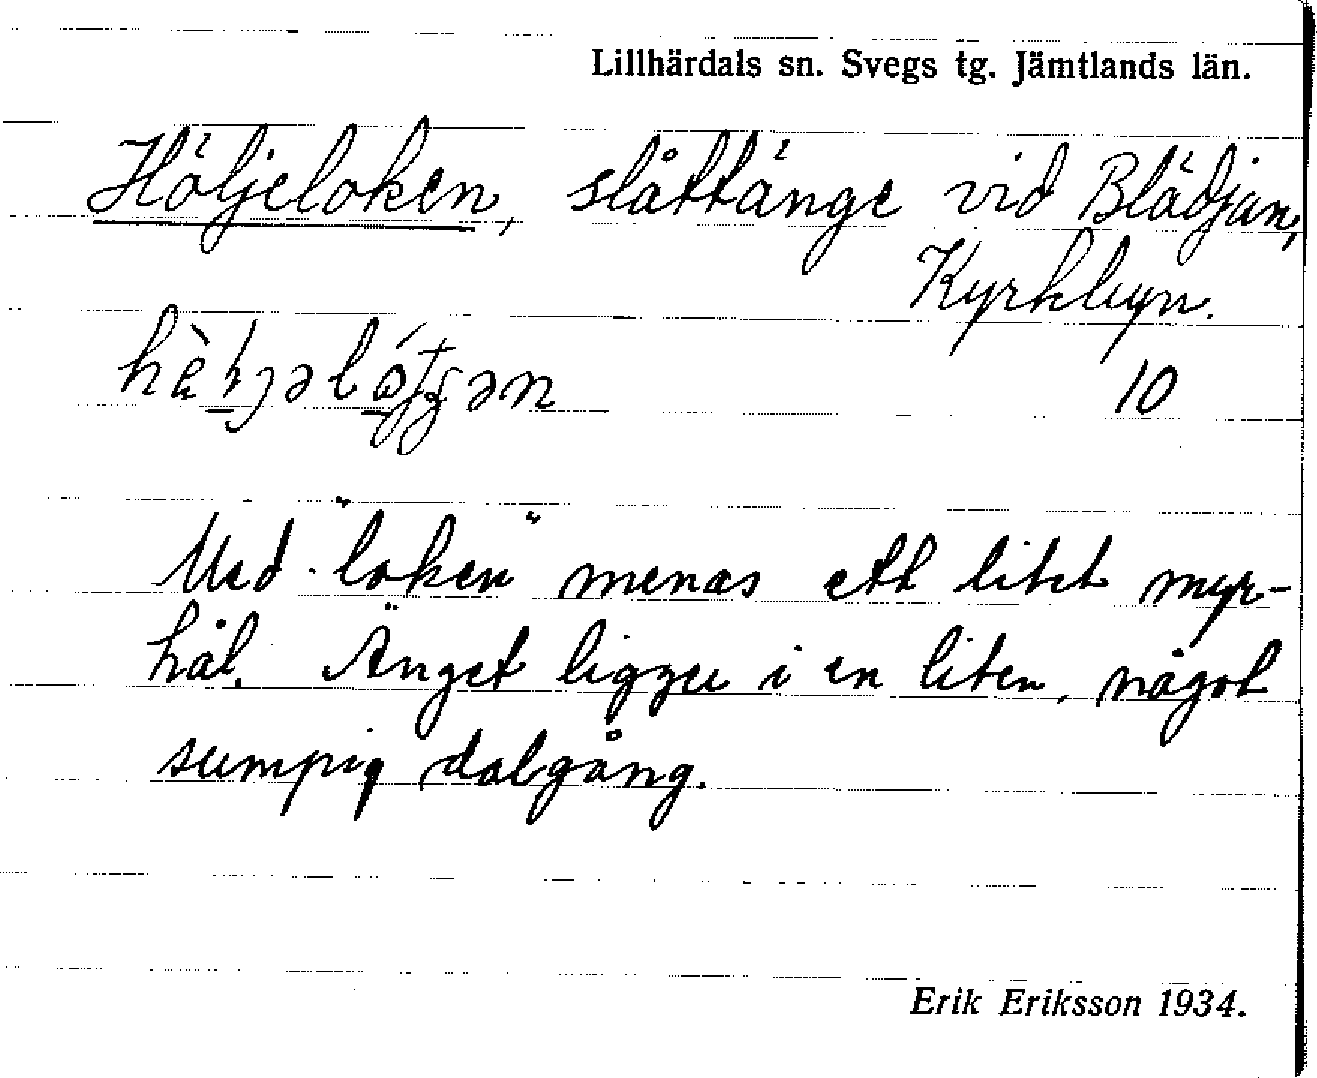 Lillhärdals sn. Svegs tg. Jämtlands län.
Höljeloken, slåttänge vid Blädjan,
Kyrkbyn.
10
Med "loken" menas ett litet myr-
hål. Änget ligger i en liten, något
sumpig dalgång.
Erik Eriksson 1934.